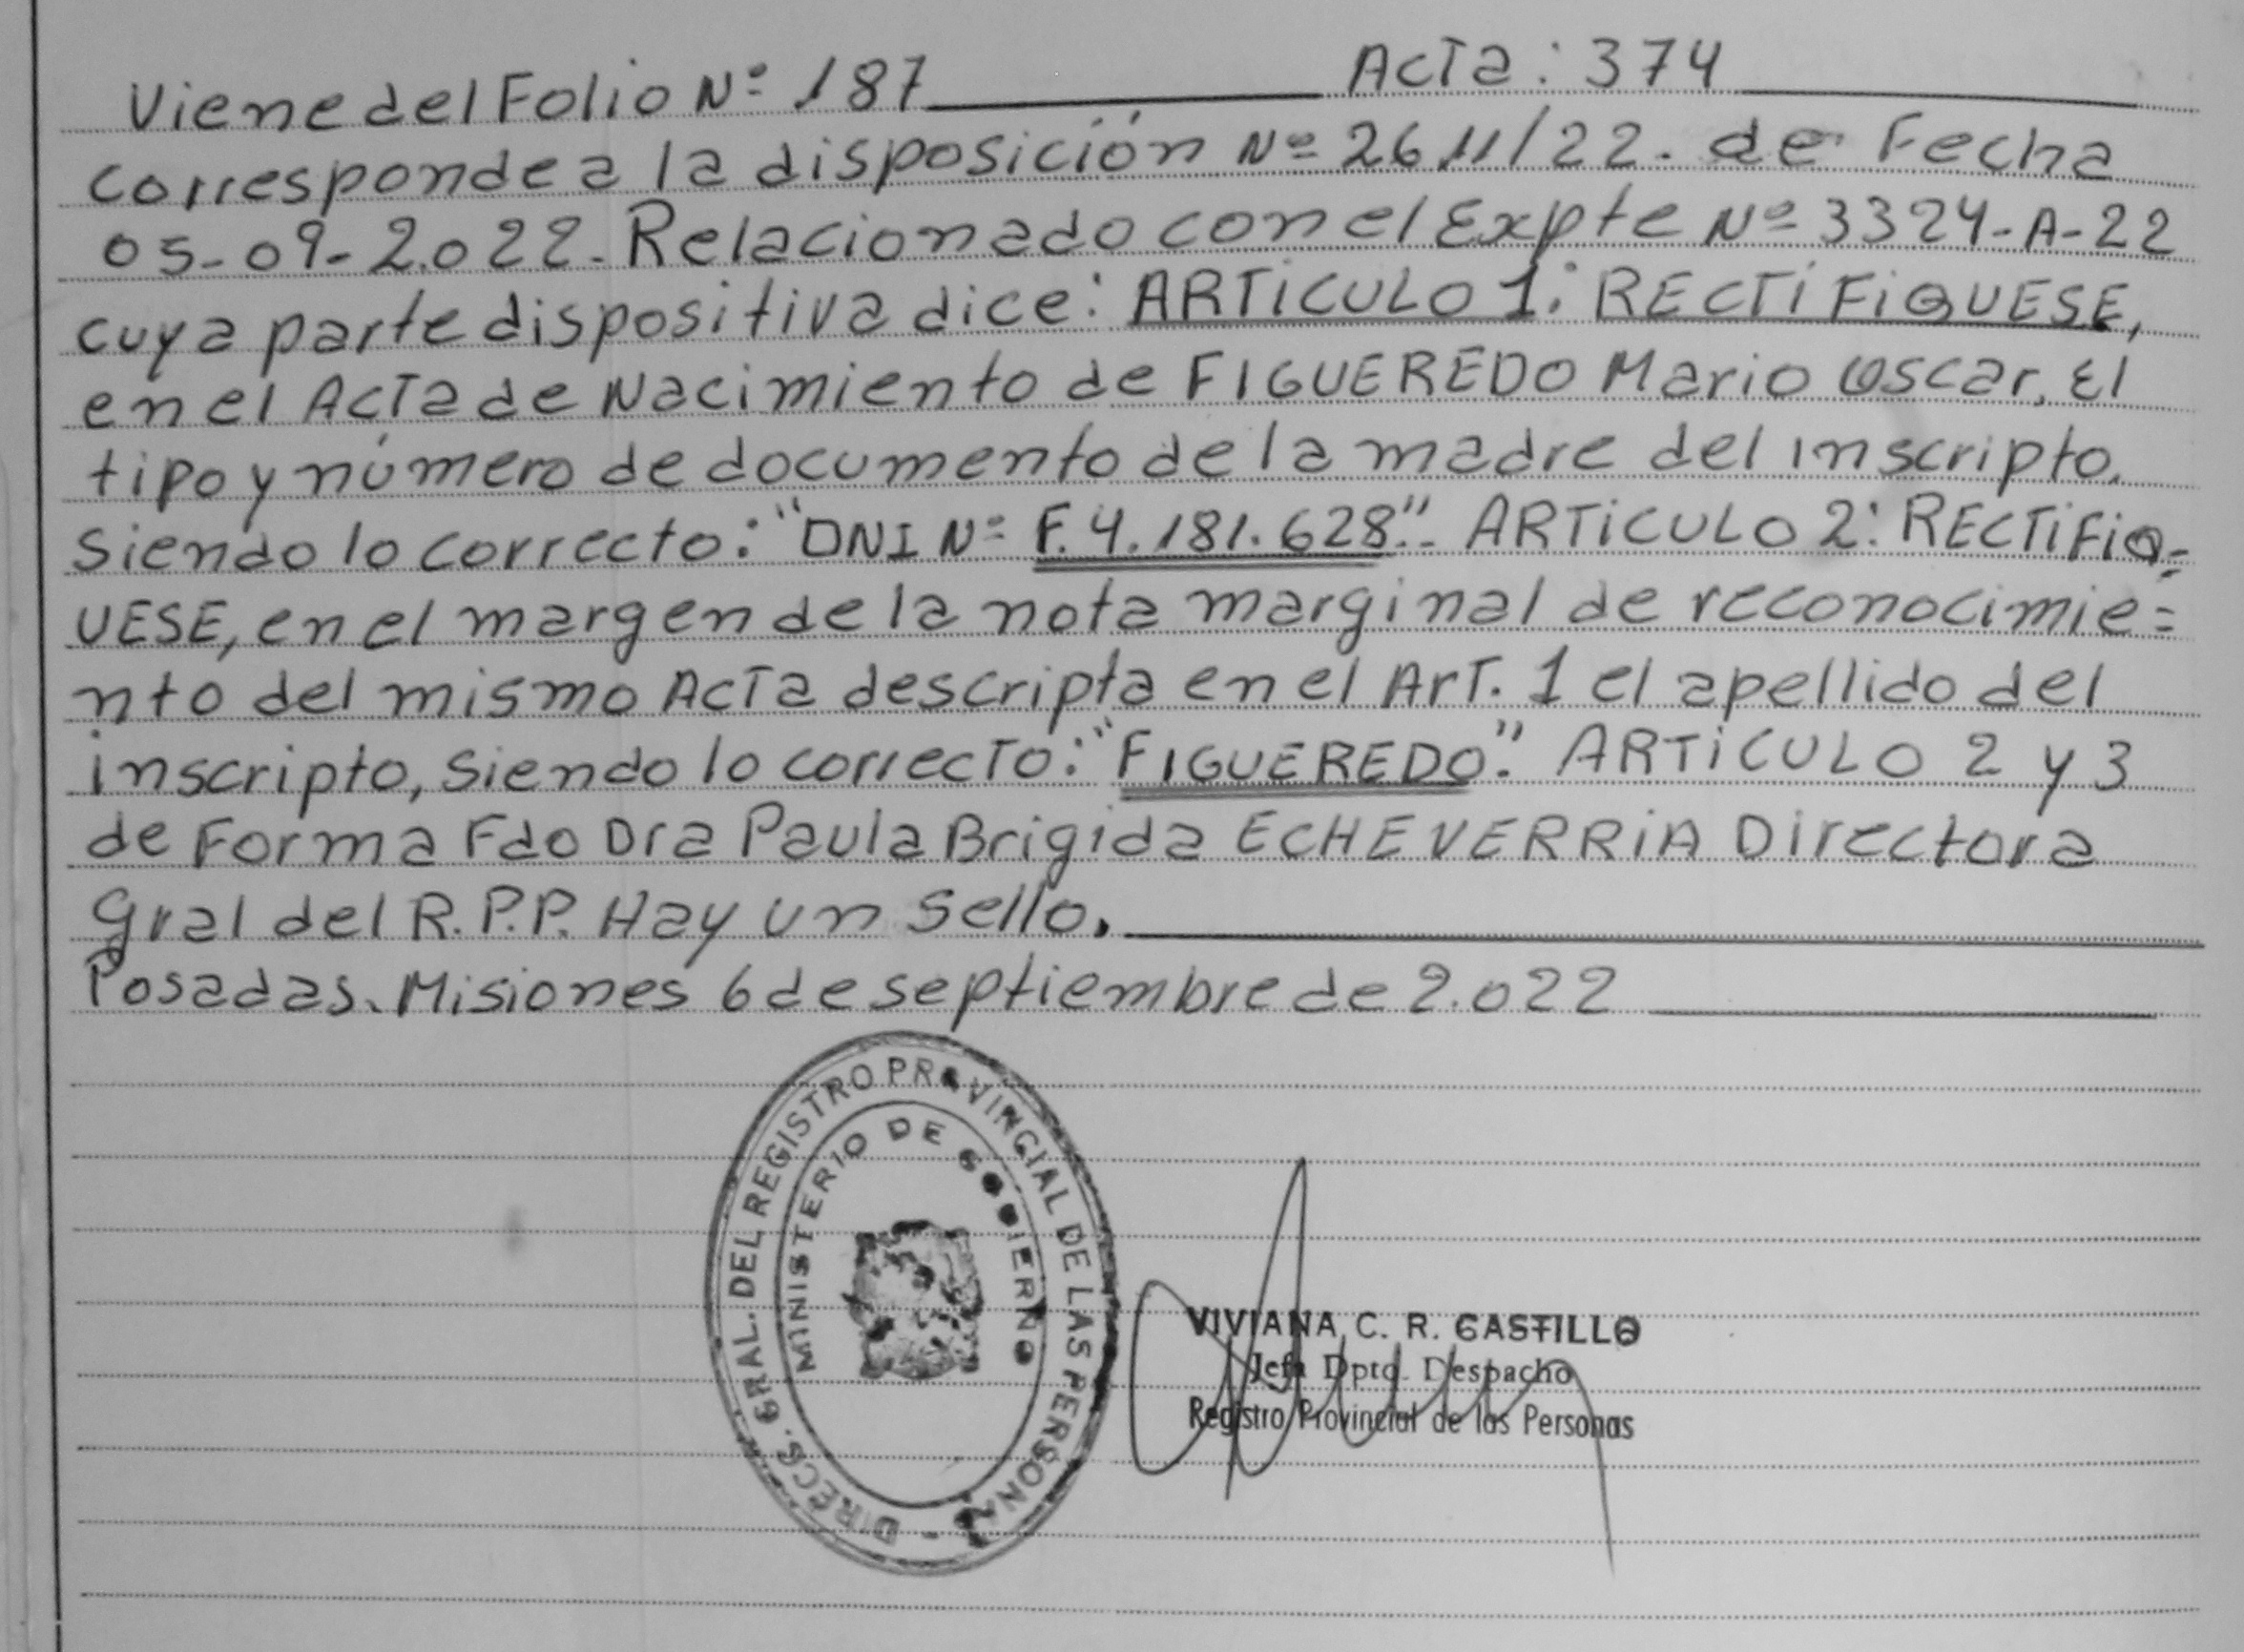 Viene del Folio Nº 187 Acta: 374
corresponde a la disposición Nº 2611/22. de Fecha
05-09-2.022. Relacionado con el Expte Nº 3324-A-22
cuya parte dispositiva dice: ARTICULO 1: RECTIFIQUESE,
en el Acta de Nacimiento de FIGUEREDO Mario Oscar, El
tipo y número de documento de la madre del inscripto.
Siendo lo correcto: "DNI Nº F.4.181.628". ARTICULO 2: RECTIFIQ=
UESE, en el margen de la nota marginal de reconocimie=
nto del mismo Acta descripta en el Art. 1 el apellido del
inscripto, siendo lo correcto: "FIGUEREDO". ARTICULO 2 y 3
de Forma Fdo Dra Paula Brigida ECHEVERRIA Directora
Gral del R.P.P. Hay un sello.
Posadas. Misiones 6 de septiembre de 2.022
DIRECC. GRAL. DEL REGISTRO PROVINCIAL DE LAS PERSONAS -
MINISTERIO DE GOBIERNO
VIVIANA C. R. CASTILLO
Jefa Dpto. Despacho
Registro Provincial de las Personas